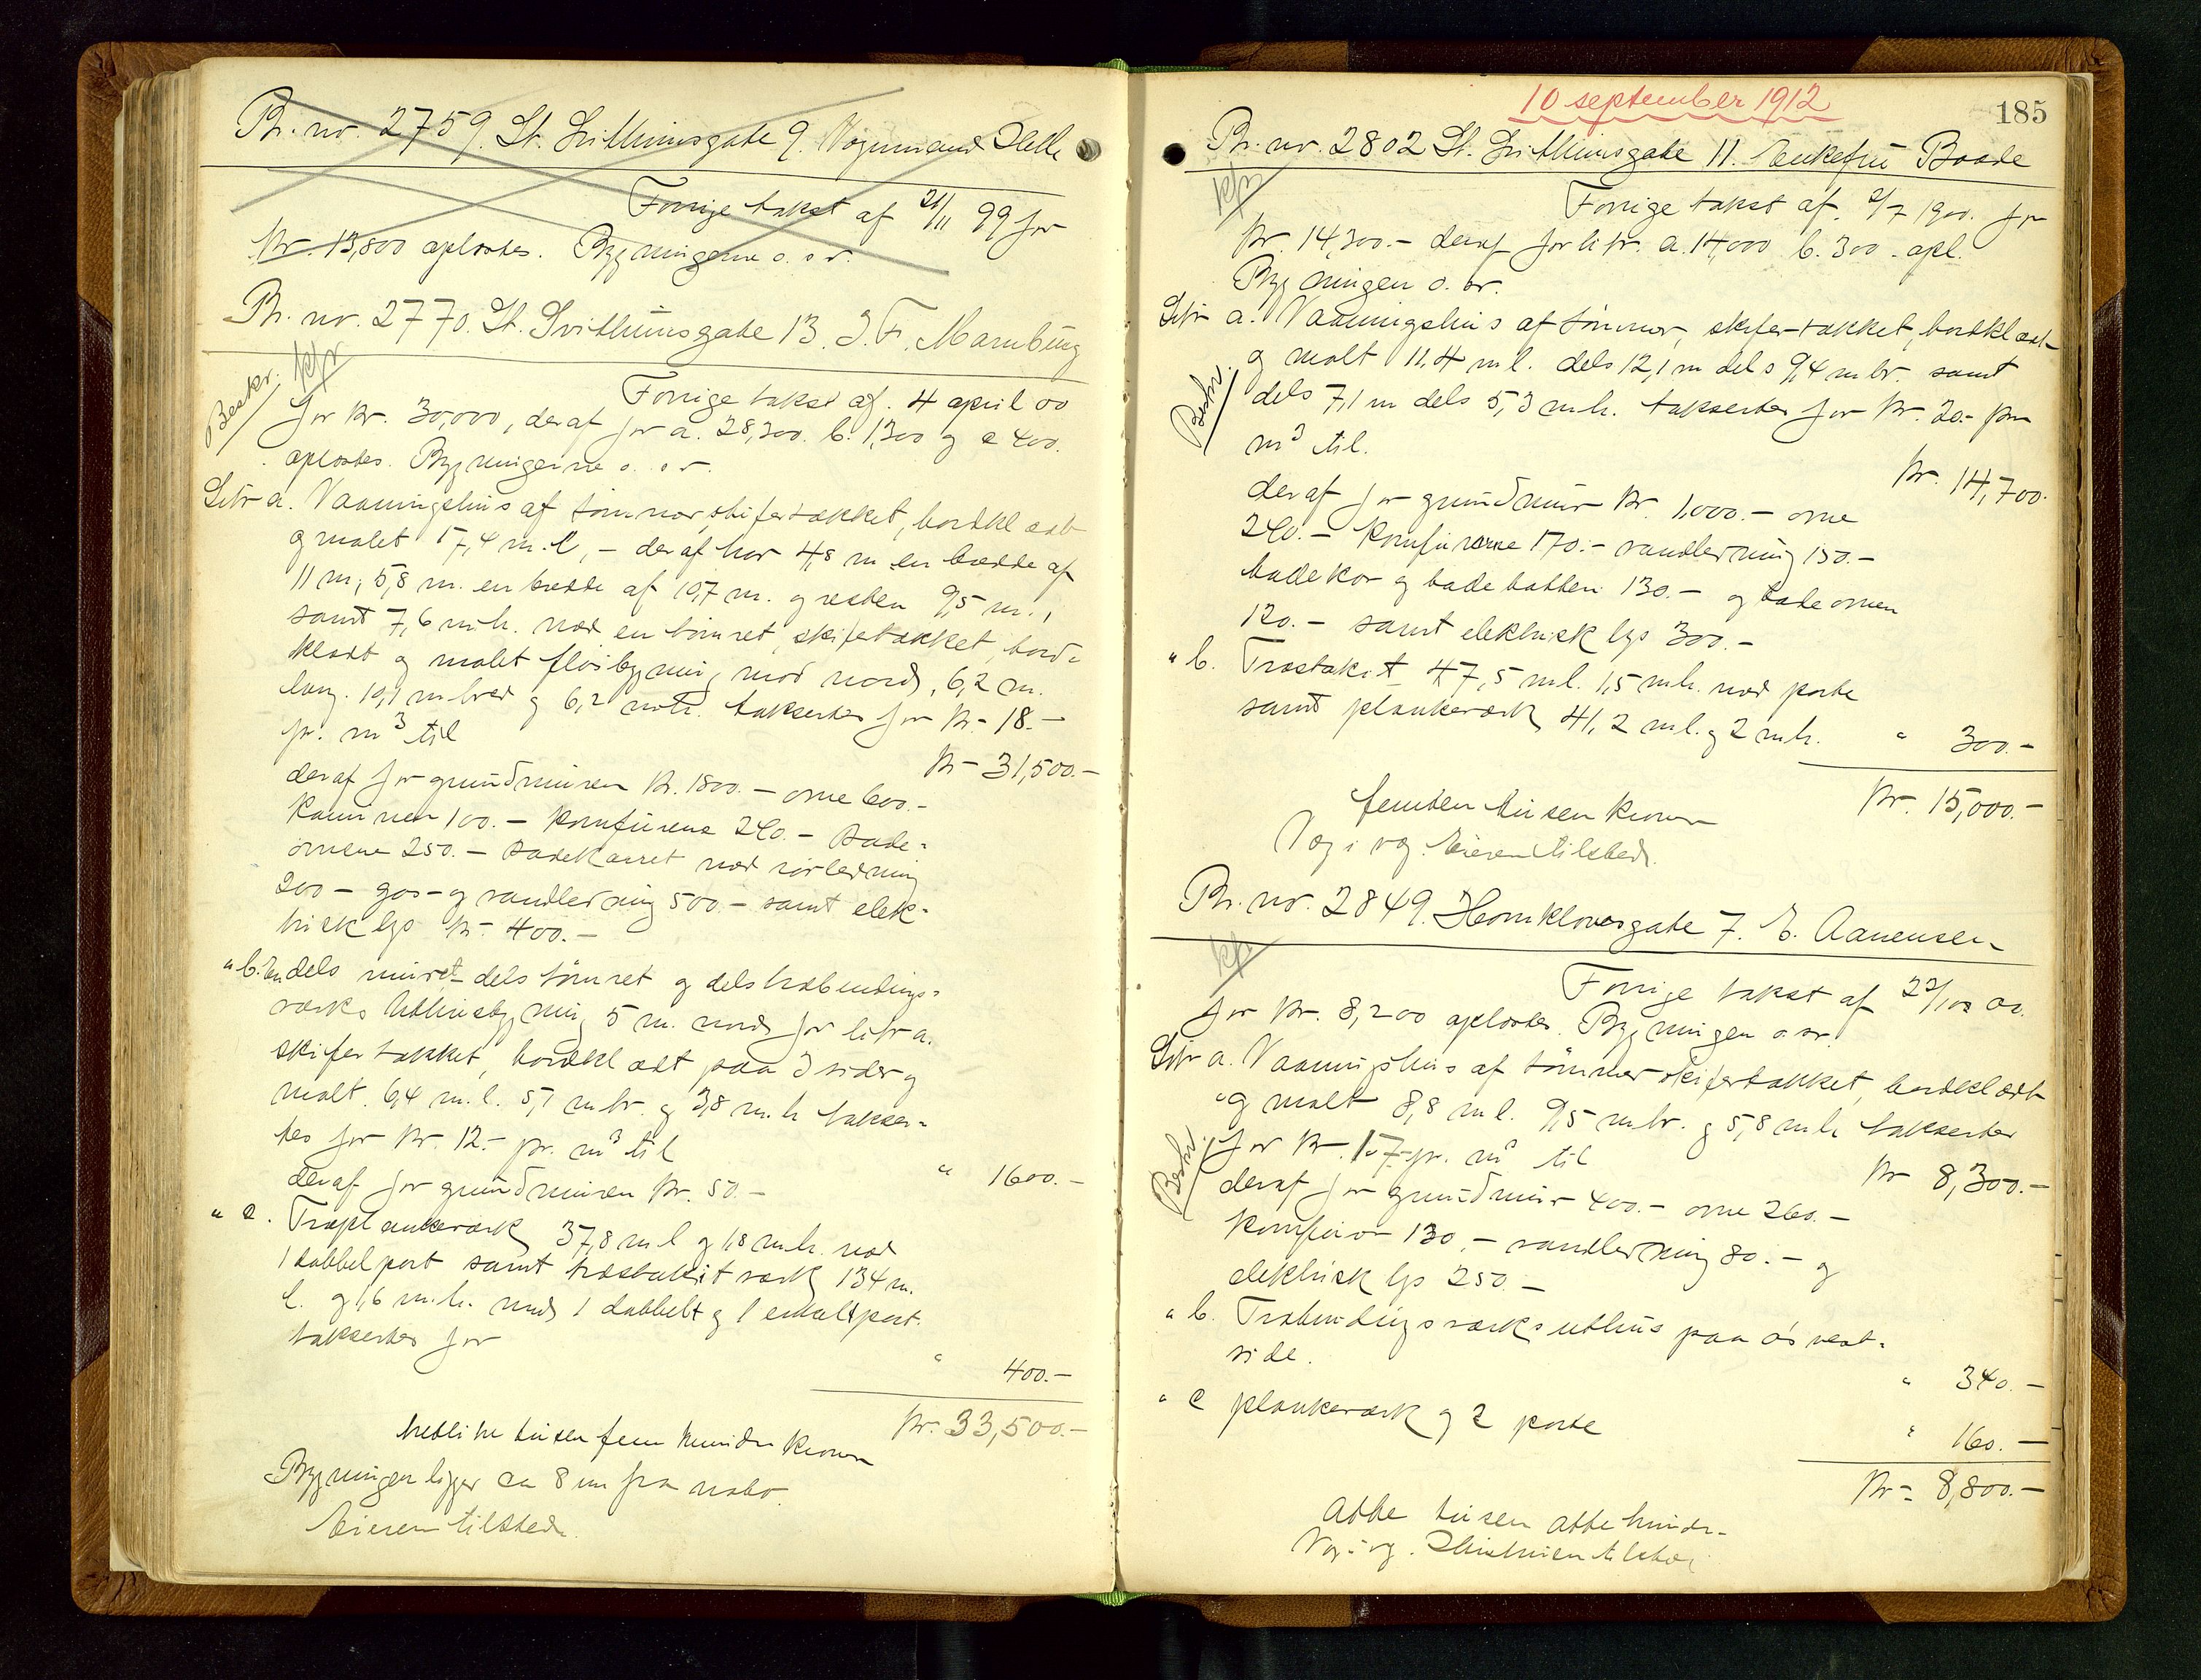 Br. nr. 2759. St. Svithunsgate 9. Vognmand Helle
Forrige takst af 21/11 99 for
Kr. 13,800 oplæstes. Bygningerne o. s. v.
Br. nr. 2770. St. Svithunsgate 13. J. F. Mamburg
Beskr. kfr
Forrige takst af. 4 april 00
for Kr. 30,000, deraf for a. 28,300. b. 1,300 og c 400.
oplæstes. Bygningerne o. s. v.
Litr a. Vaaningshus af tømmer, skifertækket, bordklædt
og malet 17,4 m. l, - deraf har 4,8 m en bredde af
11 m, 5,8 m. en bredde af 10,7 m. og resten 9,5 m.,
samt 7,6 m h. med en tømret, skifertækket, bord-
klædt og malet fløibygning mod nord, 6,2 m.
lang. 10,1 m bred og 6,2 m h. takseres for Kr. 18.-
pr. m3 til
Kr - 31,500.-
deraf for grundmuren Kr. 1800.- ovne 600.-
kaminen 100.- komfurene 240.- bade-
ovnene 250.- badekarret med rørledning
200 - gas- og vandledning 500.- samt elek-
trisk lys Kr. 400.-
" b. En dels muret- dels tømret og dels træbindings-
verks uthusbygning 5 m. nord for litr a.
skifertækket, bordklædt paa 3 sider og
malt. 6,4 m. l. 5,7 m br. og 3,8 m. h takser-
tes for Kr. 12.- pr. m3 til
" 1600.-
deraf for grundmuren Kr. 50.-
" c. Træplankeverk 37,8 m l og 1,8 m h. med
1 dobbelport samt træstakitverk 134 m.
l. og 1,6 m. h. med 1 dobbelt og 1 enkelt port.
taksertes for
" 400.-
Kr. 33,500.-
tretti tre tusen fem hundre kroner
Bygningen ligger ca 8 m fra nabo.
Eieren tilstede.
10 september 1912
185
Br. nr. 2802 St. Svithunsgate 11. Enkefru Baade
kfr
Forrige takst af. 2/7 1900. for
Kr. 14,300.- deraf for litr. a. 14,000 b. 300. opl.
Bygningen o. s. v.
Litr a. Vaaningshus af tømmer, skifer-tækket, bordklædt
og malt 11,4 m l. dels 12,1 m dels 9,4 m br. samt
Beskr.
dels 7,1 m dels 5,3 m h. taksertes for Kr. 20.- pr
m3 til.
Kr. 14,700.
deraf for grundmur Kr. 1,000.- ovne
240.- Komfurerne 170.- vandledning 150.-
badekar og badebatteri 130.- og badeovnen
120.- samt elektrisk lys 300.-
" b. Træstakit 47,5 m l. 1,5 m h. med porte
samt plankeverk 41,2 m l. og 2 m h.
" 300.-
Kr. 15,000.-
femten tusen kroner
Vog i vog. Eieren tilstede.
Br. nr. 2849. Hornklovesgate 7. E. Aanensen
kfr
Forrige takst af 22/10 00.
for Kr. 8,200 oplæstes. Bygningen o. s. v.
Litr a. Vaaningshus af tømmer skifertækket, bordklædt
og malt 8,8 m l. 9,5 m br. og 5,8 m h taksertes
Beskr.
for Kr. 17.- pr. m3 til
Kr 8,300.-
deraf for grundmur 400.- ovne 260.-
komfurer 130.- vandledning 80.- og
elektrisk lys 250.-
" b. Træbindingsverks uthus paa a's vest-
side.
" 340.-
" c plankeverk og 2 porte
" 160.-
Kr. 8,800.-
Otte tusen otte hundre
Vog i vog. tilstede